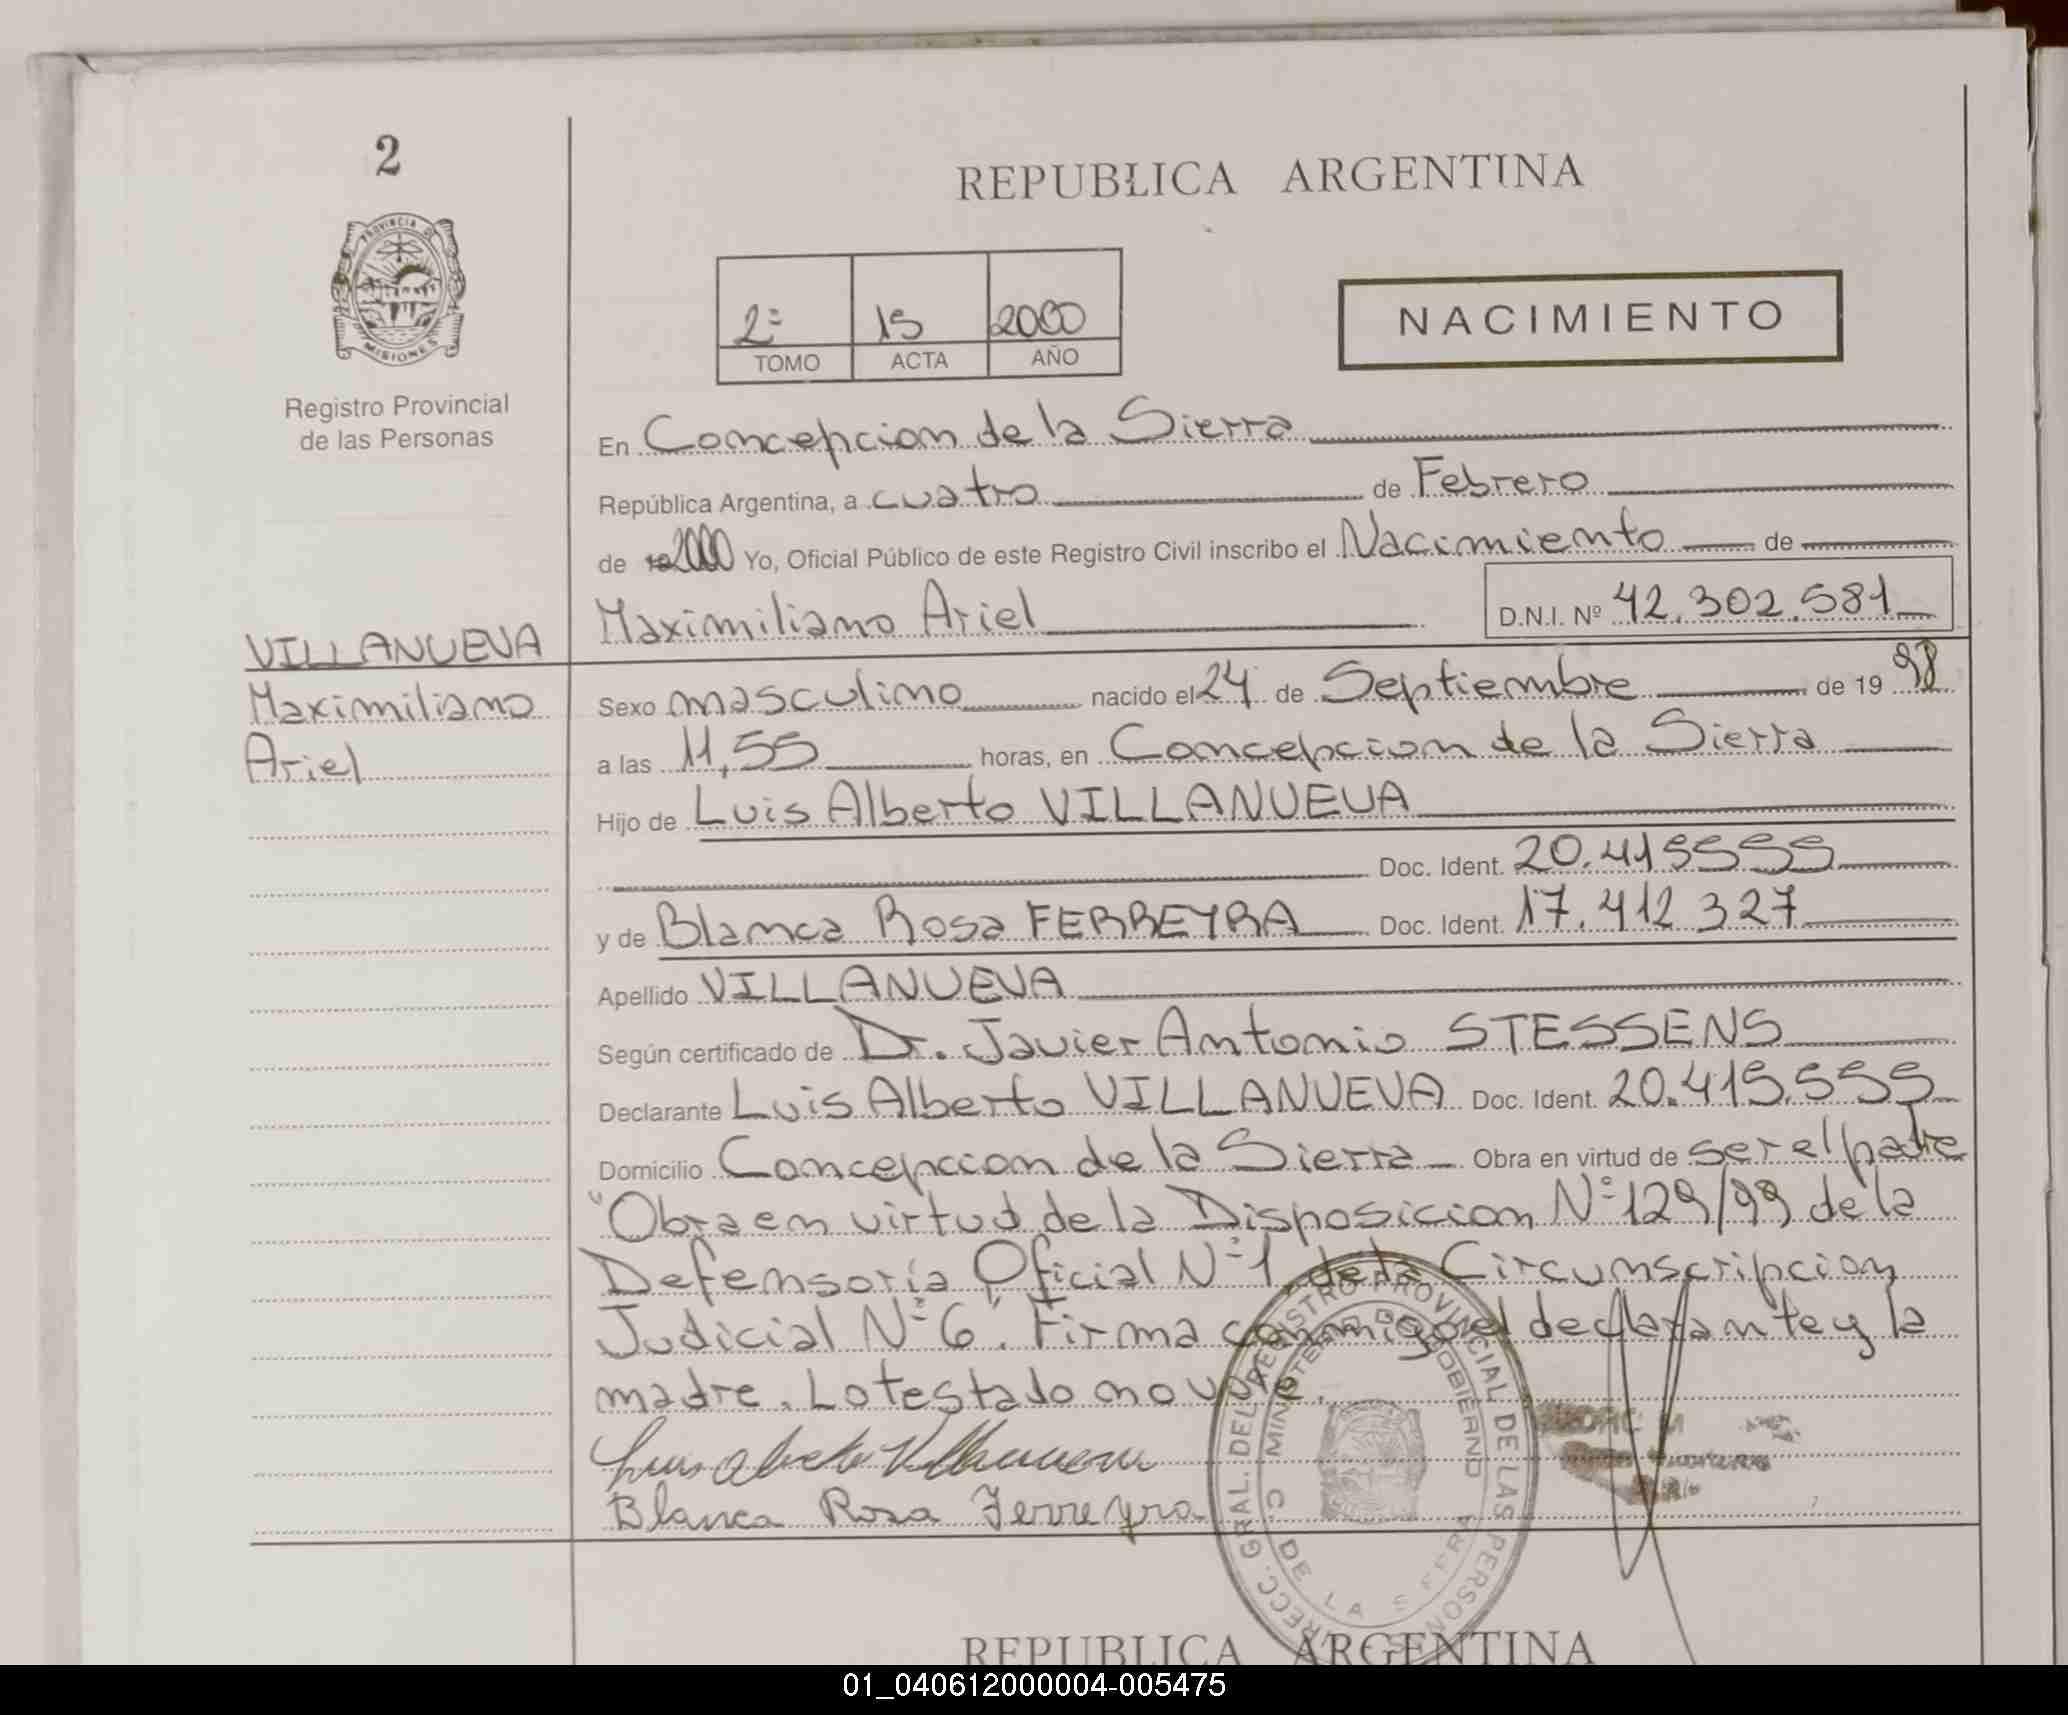 2
REPUBLICA ARGENTINA
PROVINCIA DE
MISIONES
Registro Provincial
de las Personas
2º 15 2000
TOMO ACTA AÑO
NACIMIENTO
En Concepcion de la Sierra
República Argentina, a cuatro de Febrero
de 2000 Yo, Oficial Público de este Registro Civil inscribo el Nacimiento de
Maximiliano Ariel D.N.I. Nº 42.302.581
VILLANUEVA
Maximiliano
Ariel
Sexo masculino nacido el 24 de Septiembre de 19 98
a las 11,55 horas, en Concepcion de la Sierra
Hijo de Luis Alberto VILLANUEVA
Doc. Ident. 20.415555
y de Blanca Rosa FERREYRA Doc. Ident. 17.412 327
Apellido VILLANUEVA
Según certificado de Dr. Javier Antonio STESSENS
Declarante Luis Alberto VILLANUEVA Doc. Ident. 20.415.555
Domicilio Concepcion de la Sierra Obra en virtud de ser el padre
"Obra en virtud de la Disposicion Nº 129/99 de la
Defensoría Oficial Nº 1 de la Circunscripcion
Judicial Nº 6". Firma conmigo el declarante y la
madre. Lo testado no vale.
Luis Alberto Villanueva
Blanca Rosa Ferreyra
DIRECC. GRAL. DEL REGISTRO PROVINCIAL DE LAS PERSONAS
MINISTERIO DE GOBIERNO
C. DE LA SIERRA
REPUBLICA ARGENTINA
01_040612000004-005475